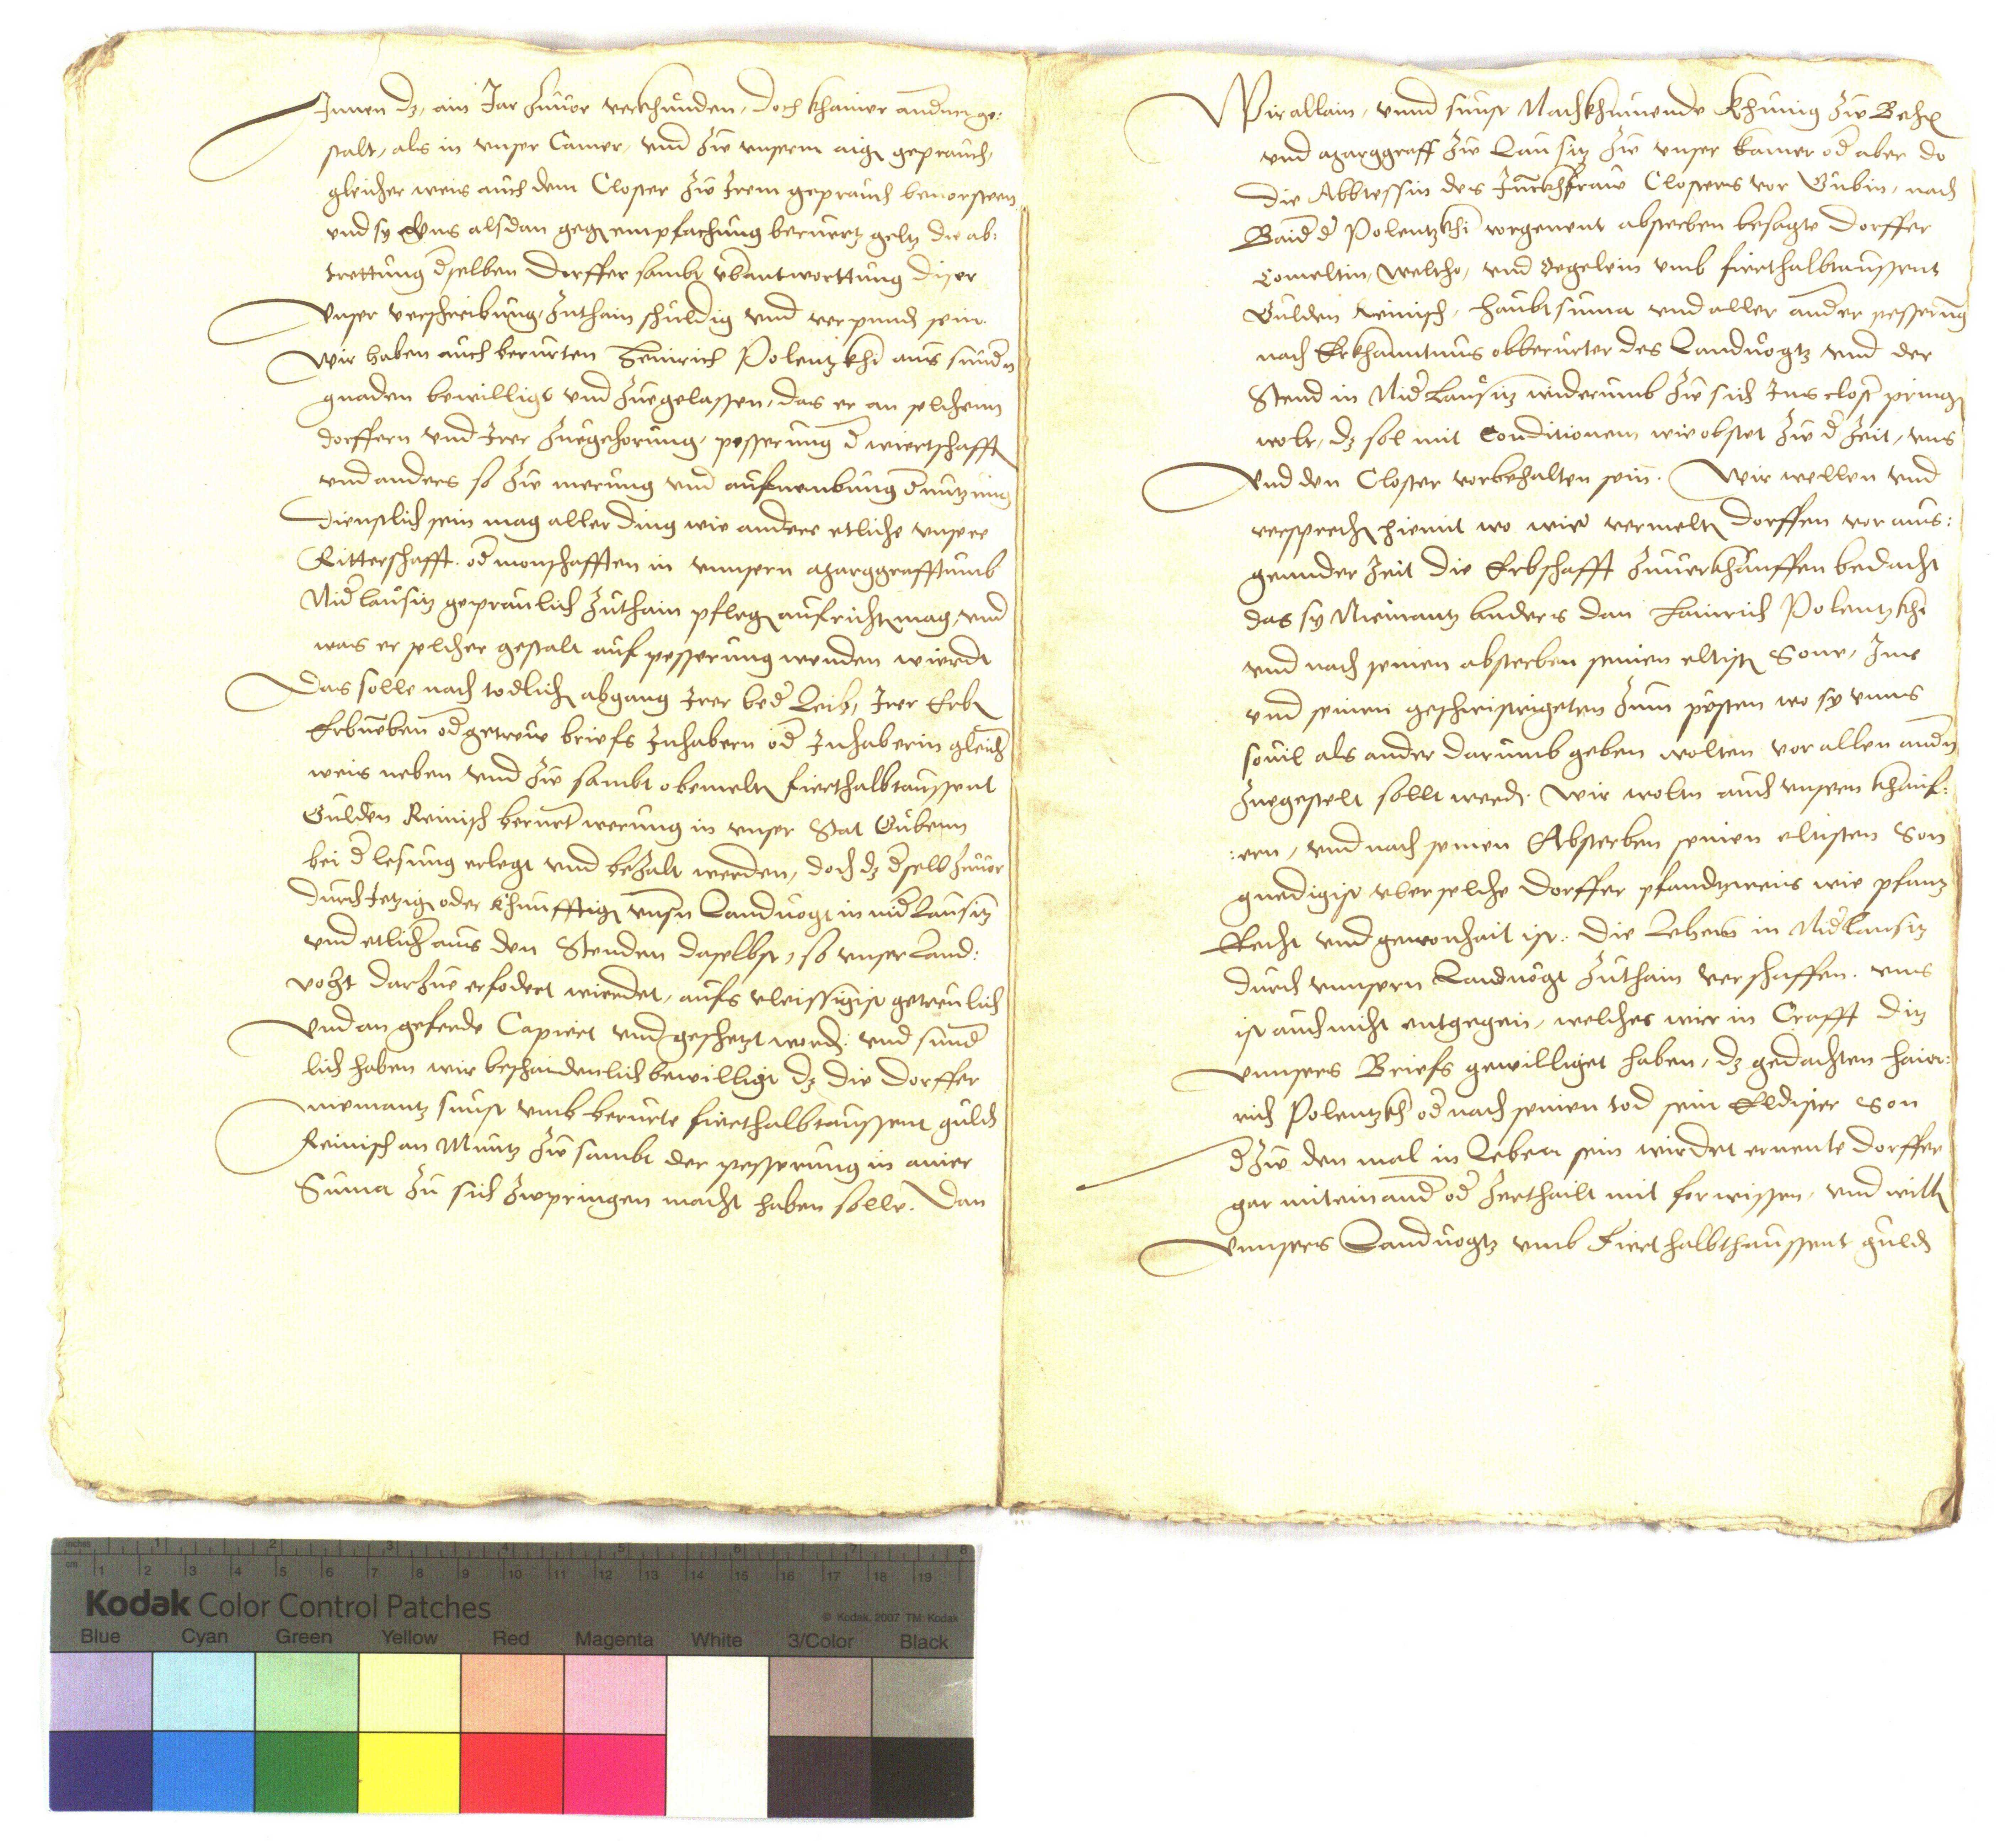 Innen dz, ain Jar zuuor verkhunden, doch khainer andrer ge:
stalt, als in vnser Camer, vnd zw vnserm aign geprauch,
gleicher weis auch dem Closter zw Irem geprauch beuorsteen
vnd sy vns alsdan gegn empfachung berurtz geltz die ab:
trettung dselben Dorffer sambt vbantworttung diser
vnser verschreibung, zuthain schuldig vnd verpundn sein.
Wir haben auch berurten Heinrich Polentzkhi aus sundn
gnaden bewilligt vnd zuegelassen, das er an solchenn
dorffern vnd Irer zuegehorung, pesserung d wiertschafft
vnd anders so zw merung vnd aufnembung d nutzung
Dienstlich sein mag aller ding wie andere etliche vnsere
Ritterschafft. od monschafften in vnnsern Marggrafftumb
Nidlausitz gepraulich zuthain pflegn aufrichtn mag, vnd
was er solcher gestalt auf pesserung wenden wierdt
Das solle nach todlichn abgang Irer bed Leib, Irer Erbn
Erbneben od getrew briefs Inhabern od Inhaberin gleich
weis neben vnd zw sambt obemeltn fierthalbtaussent
Gulden Reinisch berurt werung in vnser Stat Gubenn
bei d lesung erlegt vnd bezalt werden, doch dz dselb zuuor
durch Jetzign oder khunfftign vnsn Landuogt in nid Lausitz
vnd etlich aus den Stenden daselbst, so vnser Land:
vogt darzue erfodert wierdet, aufs vleissigist getreulich
vnd an geferde Capiert vnd geschetzt werdn. vnd sund
lich haben wir beschaidenlich bewilligt dz die dorffer
niemantz sunst vmb berurte fierthalbtaussent guldn
Reinisch an Muntz zw sambt der pesserung in ainer
Suma zu sich zupringen macht haben solle. Dan
Wir allain, vnnd sunst Nachkhumende Khunig zw Behem
vnd Marggraff zw Lausitz zw vnser kamer od aber do
die Abbtessin des Junckhfraw Closters vor Gubin, nach
Baid d Polentzkhi vorgenent absterben besagte dorffer
Comeltin, Weltho, vnd Segelein vmb fierthalbtaussent
Gulden Reinisch, haubt suma vnd aller ander pesserung
nach Erkhanntnus obberurter des Landuogtz vnd der
Stend in Nid Lausitz widerumb zw sich Ins clost pringn
wolt, dz sol mit Conditionen wie obstet zw d zeit, vns
vnd den Closter vorbehalten sein. Wir wellen vnd
versprechn hiemit wo wier vermeltn Dorffen vor aus:
gennder zeit die Erbschafft zuuerkhauffen bedacht
das sy Niemantz anders dan Hainrich Polentzkhi
vnd nach seinen absterben seinen eltistn Sone, Ime
vnd seinen geschwistrigeten zum pesten wo sy vnns
souil als ander darumb geben wolten vor allen andn
zuegestelt sollt werdn. Wir woln auch vnseren khauf:
:ern, vnd nach seinen Absterben seinen eltisten Son
gnedigist vber solche dorffer pfandtzweis wie pfantz
Recht vnd gewonhait ist. die Lehens in Nid Lausitz
durch vnnsern Landuogt zuthain verschaffen. vns
ist auch nicht entgegen, welches wier in Crafft ditz
vnnsers Briefs gewilliget haben, dz gedachten Hain:
rich Polentzkh od nach seinen tod sein Eldister Son
d zw den mal in Leben sein wirdet ernente dorffer
gar miteinand od zerthailt mit forwissen, vnd willn
vnnsers Landuogtz vmb Fierthalbthaussent guldn
Kodak Color Control Patches
© Kodak, 2007 TM: Kodak
Blue Cyan Green Yellow Red Magenta White 3/Color Black